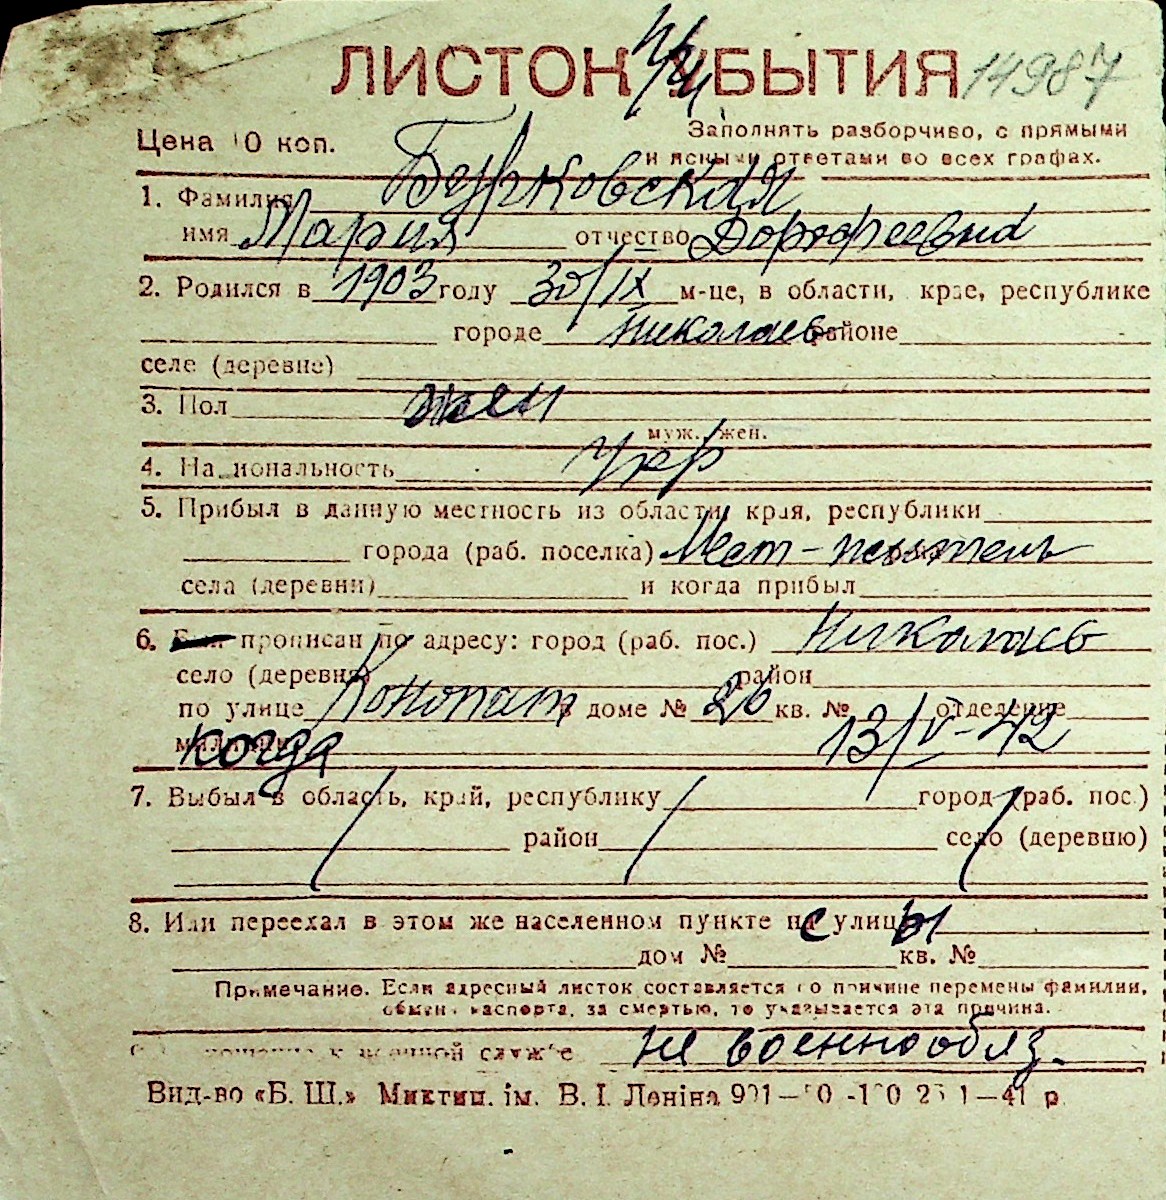 ЛИСТОК УБЫТИЯ 14987
Цена 10 коп.
Заполнять разборчиво, с прямыми
и ясными ответами во всех графах.
1. Фамилия Берковская
имя Мария отчество Дорофеевна
2. Родился в 1903 году 30/IX м-це, в области, крае, республике
городе Николаев районе
селе (деревне)
3. Пол жен
муж. жен.
4. Национальность Укр
5. Прибыл в данную местность из области, края, республики
города (раб. поселка) Мест-житель
села (деревни) и когда прибыл
6. Был прописан по адресу: город (раб. пос.) Николаев
село (деревня) район
по улице Конопат в доме № 26 кв. № отделение
милиции когда 13/V-42
7. Выбыл в область, край, республику город (раб. пос.)
район село (деревню)
8. Или переехал в этом же населенном пункте с улицы
дом № кв. №
Примечание. Если адресный листок составляется по причине перемены фамилии,
обмена паспорта, за смертью, то указывается эта причина.
к военной службе не военнообяз.
Вид-во «Б. Ш.» Миктип. ім. В. І. Леніна